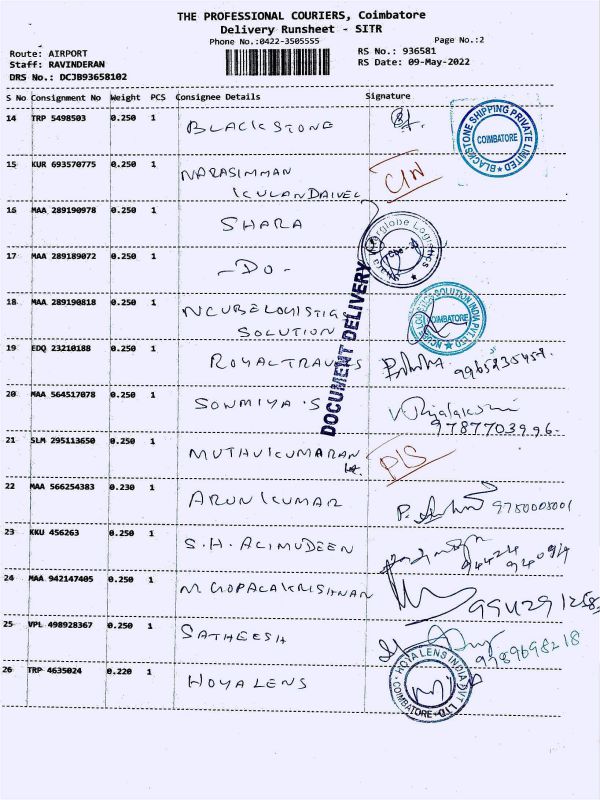 THE PROFESSIONAL COURIERS, Coimbatore
Delivery Runsheet - SITR
Phone No.:0422-3505555
Page No.:2
Route: AIRPORT
RS No.: 936581
Staff: RAVINDERAN
RS Date: 09-May-2022
DRS No.: DCJB93658102
S No Consignment No Weight PCS Consignee Details Signature
14 TRP 5498503 0.250 1 BLACKSTONE
BLACKSTONE SHIPPING PRIVATE LIMITED
COIMBATORE
15 KUR 693570775 0.250 1 NARASIMMAN
KULANDAIVEL
16 MAA 289190978 0.250 1 SHARA
17 MAA 289189072 0.250 1 -DO-
DOCUMENT DELIVERY
18 MAA 289190818 0.250 1 NCUBELOGISTIG
SOLUTION
COIMBATORE
19 EDQ 23210188 0.250 1 ROYAL TRAVELS
20 MAA 564517078 0.250 1 SOWMIYA.S
9787703996.
21 SLM 295113650 0.250 1 MUTHUKUMARAN
22 MAA 566254383 0.230 1 ARUNKUMAR
9750005001
23 KKU 456263 0.250 1 S.H. ALIMUDEEN
24 MAA 942147405 0.250 1 M GOPALAKRISHNAN
25 VPL 498928367 0.250 1 SATHEESH
9789698218
26 TRP 4635024 0.220 1 HOYALENS
HOYA LENS INDIA PVT LTD
COIMBATORE